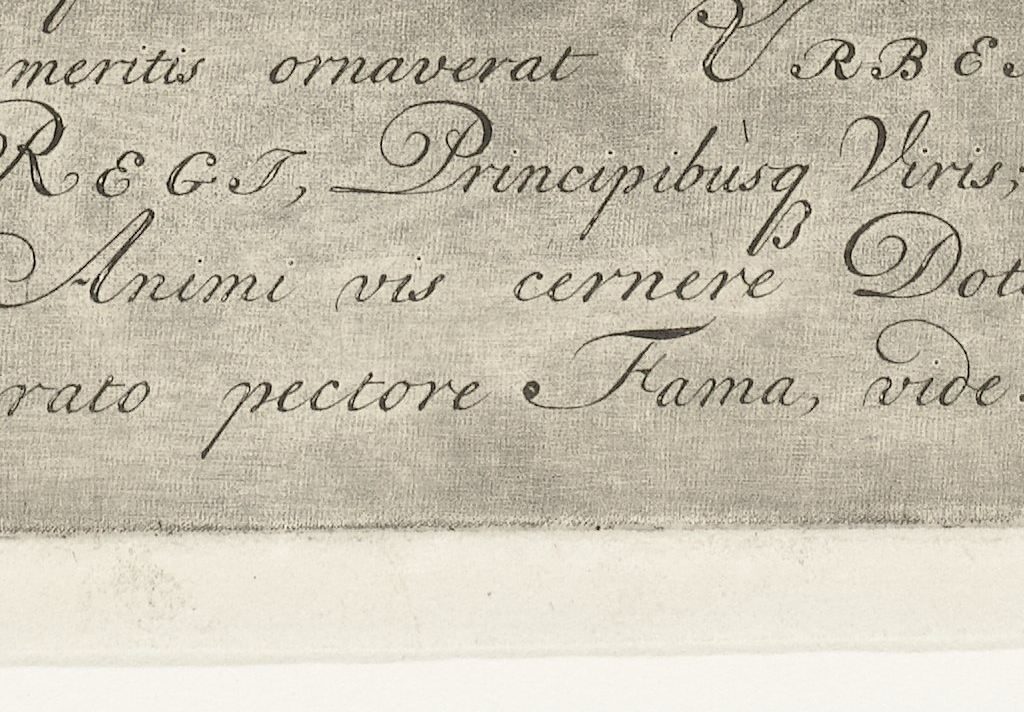 meritis ornaverat URBES
REGI, Principibùsq Viris;
Animi vis cernere
rato pectore Fama, vide.